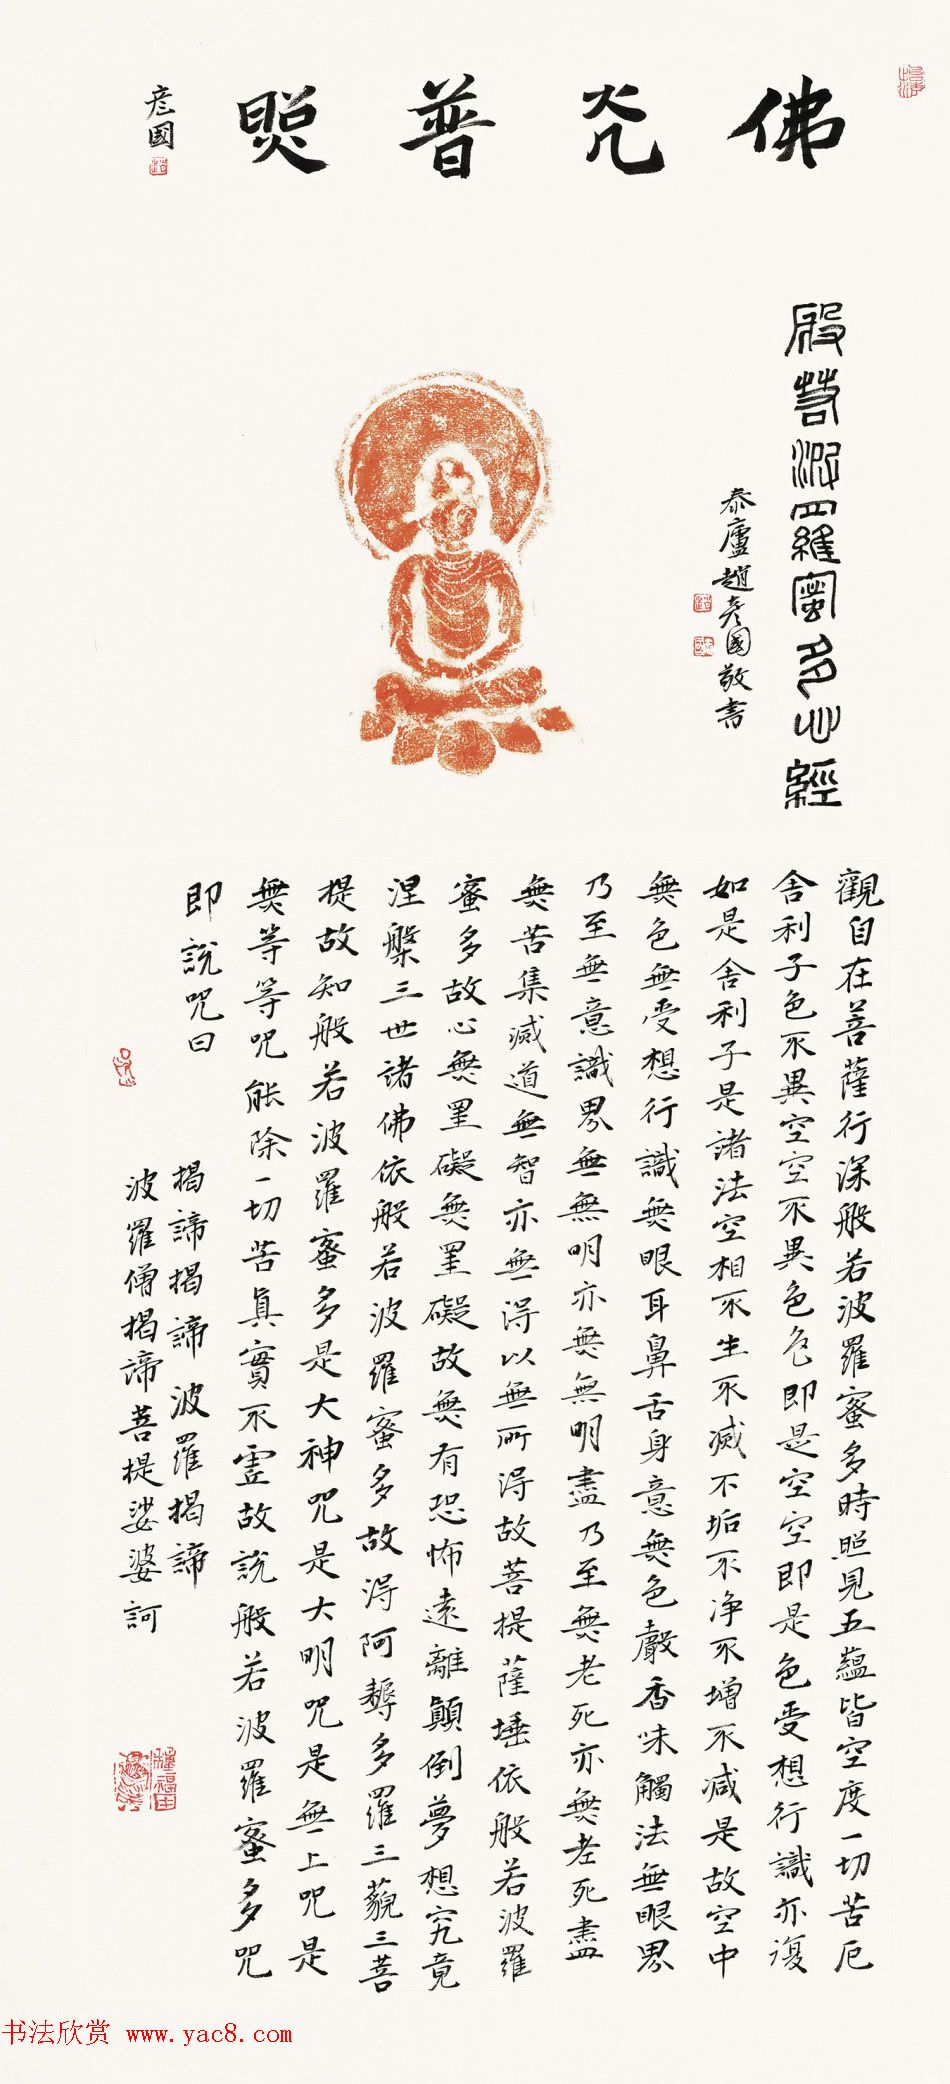 佛光普照
彦國
般若波羅蜜多心經
泰廬趙彦國敬書
觀自在菩薩行深般若波羅蜜多時照見五蘊皆空度一切苦厄
舍利子色不異空空不異色色即是空空即是色受想行識亦復
如是舍利子是諸法空相不生不滅不垢不净不增不减是故空中
無色無受想行識無眼耳鼻舌身意無色聲香味觸法無眼界
乃至無意識界無無明亦無無明盡乃至無老死亦無老死盡
無苦集滅道無智亦無得以無所得故菩提薩埵依般若波羅
蜜多故心無罣礙無罣礙故無有恐怖遠離顛倒夢想究竟
涅槃三世諸佛依般若波羅蜜多故得阿耨多羅三藐三菩
提故知般若波羅蜜多是大神咒是大明咒是無上咒是
無等等咒能除一切苦真實不虛故説般若波羅蜜多咒
即説咒曰
揭諦揭諦 波羅揭諦
波羅僧揭諦菩提娑婆訶
书法欣赏 www.yac8.com